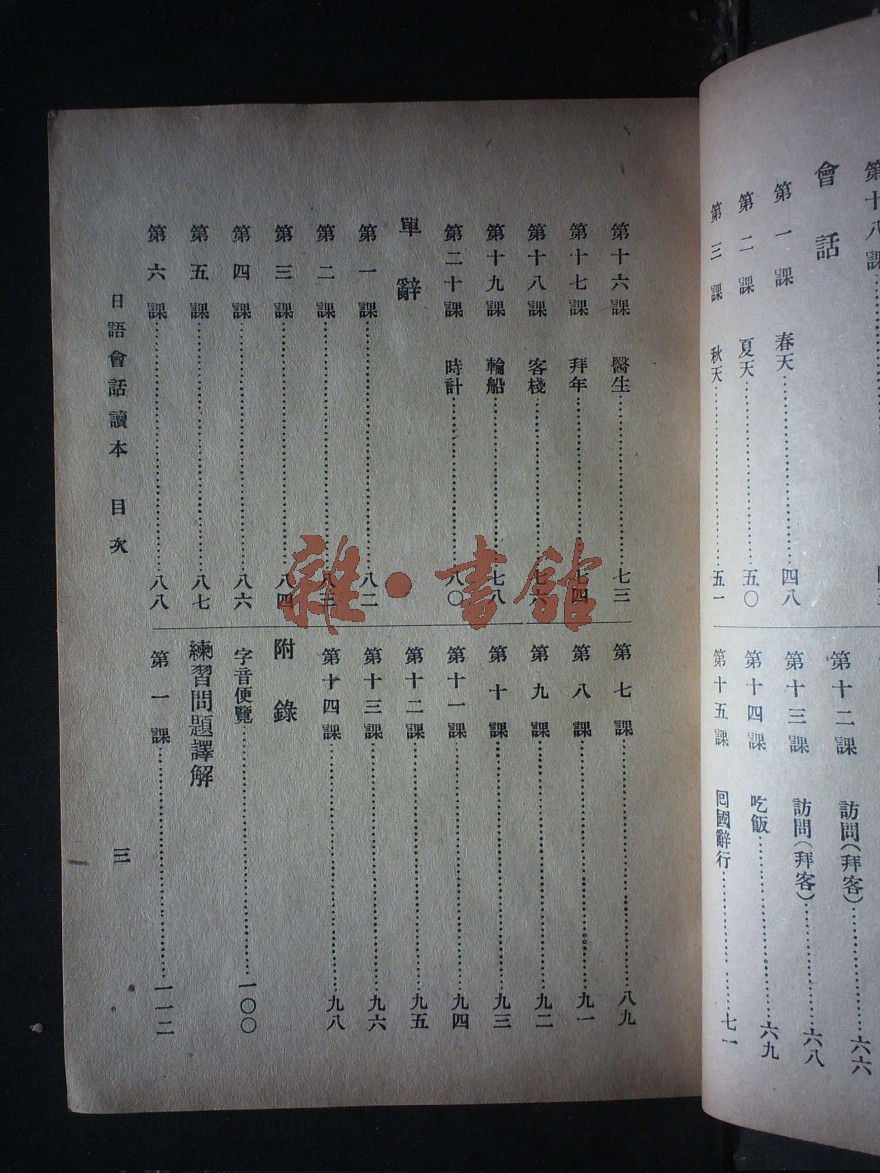 第十八課
會話
第一課 春天 四八
第二課 夏天 五〇
第三課 秋天 五一
第十二課 訪問(拜客) 六六
第十三課 訪問(拜客) 六八
第十四課 吃飯 六九
第十五課 回國辭行 七一
第十六課 醫生 七三
第十七課 拜年 七四
第十八課 客棧 七六
第十九課 輪船 七八
第二十課 時計 八〇
單辭
第一課 八二
第二課 八三
第三課 八四
第四課 八六
第五課 八七
第六課 八八
第七課 八九
第八課 九一
第九課 九二
第十課 九三
第十一課 九四
第十二課 九五
第十三課 九六
第十四課 九八
附錄
字音便覽 一〇〇
練習問題譯解
第一課 一一二
日語會話讀本 目次
三
雜·書館